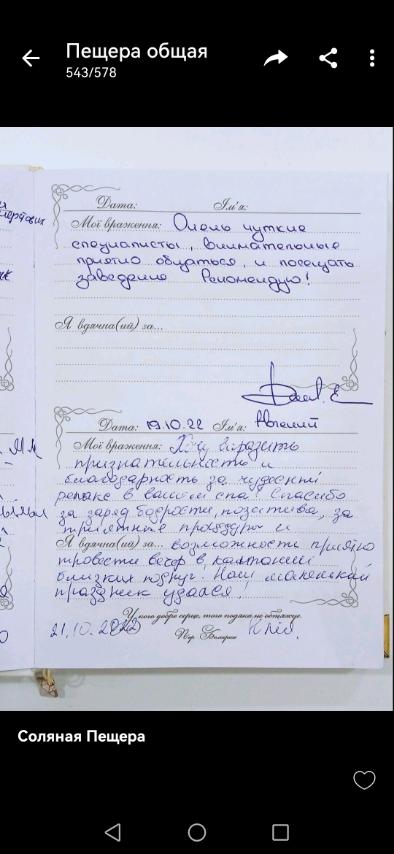 Пещера общая
543/578
Дата: Ім'я:
Мої враження: Очень чуткие
специалисты, внимательные
приятно общаться, и посещать
заведение Рекомендую!
Я вдячна(ий) за...
Дата: 19.10.22 Ім'я:
Мої враження: Хочу выразить
признательность и
благодарность за чудесный
релакс в вашем спа! Спасибо
за заряд бодрости, позитива, за
приятные процедуры и
Я вдячна(ий) за... возможность приятно
провести вечер в компании
близких подруг. Наш маленький
праздник удался!
У кого добре серце, того подяка не обтяжує.
21.10.2022 Київ.
Соляная Пещера